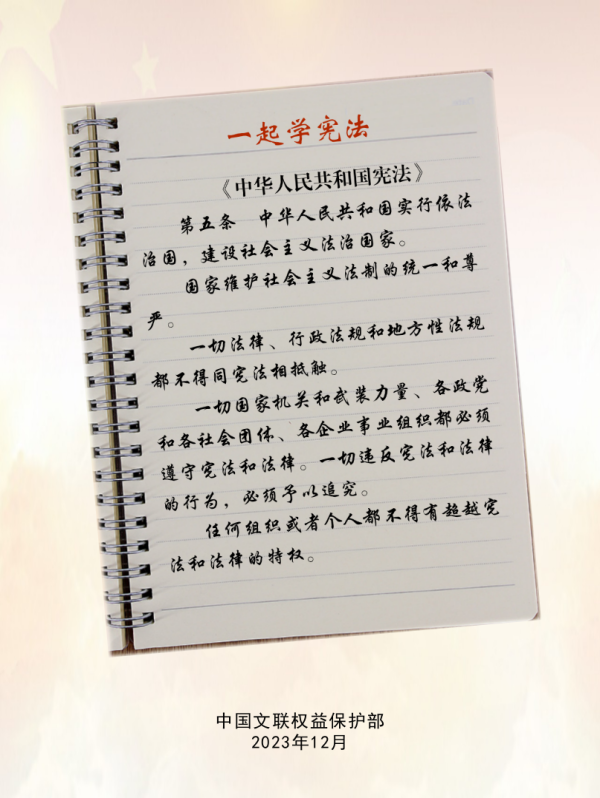 一起学宪法
《中华人民共和国宪法》
第五条 中华人民共和国实行依法
治国，建设社会主义法治国家。
国家维护社会主义法制的统一和尊
严。
一切法律、行政法规和地方性法规
都不得同宪法相抵触。
一切国家机关和武装力量、各政党
和各社会团体、各企业事业组织都必须
遵守宪法和法律。一切违反宪法和法律
的行为，必须予以追究。
任何组织或者个人都不得有超越宪
法和法律的特权。
中国文联权益保护部
2023年12月